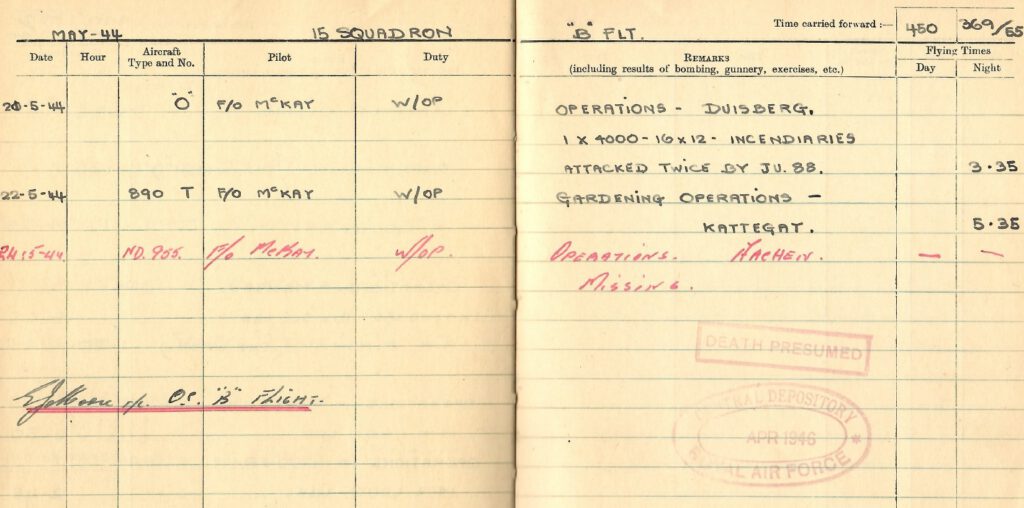 MAY-44 15 SQUADRON "B" FLT. Time carried forward :— 450 369/55
Date Hour Aircraft Type and No. Pilot Duty REMARKS (including results of bombing, gunnery, exercises, etc.) Flying Times Day Night
20-5-44 "O" F/O McKAY W/OP OPERATIONS - DUISBERG.
1 x 4000 - 16 x 12 - INCENDIARIES
ATTACKED TWICE BY JU. 88. 3.35
22-5-44 890 T F/O McKAY W/OP GARDENING OPERATIONS -
KATTEGAT. 5.35
24-5-44 ND.955. F/o McKAY. W/OP. OPERATIONS. AACHEN. — —
MISSING.
DEATH PRESUMED
OC. "B" FLIGHT.
CENTRAL DEPOSITORY
APR 1946
ROYAL AIR FORCE